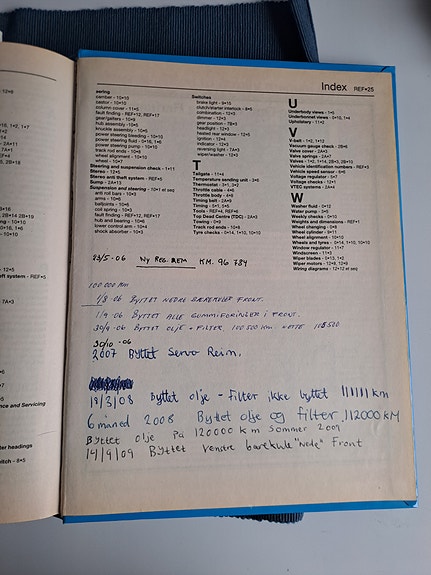 Index REF•25
eering
camber - 10•10
castor - 10•10
column cover - 11•5
fault finding - REF•12, REF•17
gear/gaiters - 10•9
hub assembly - 10•5
knuckle assembly - 10•5
power steering bleeding - 10•10
power steering fluid - 0•16, 1•6
power steering pump - 10•10
track rod ends - 10•10
wheel alignment - 10•10
wheel - 10•7
Steering and suspension check - 1•11
Stereo - 12•5
Stereo anti theft system - REF•5
Sump - 2A•11
Suspension and steering - 10•1 et seq
anti roll bars - 10•3
arms - 10•6
balljoints - 10•6
coil spring - 10•3
fault finding - REF•12, REF•17
hub and bearing - 10•6
lower control arm - 10•4
shock absorber - 10•3
Switches
brake light - 9•15
clutch/starter interlock - 8•5
combination - 12•3
dimmer - 12•3
gear position - 7B•3
headlight - 12•3
heated rear window - 12•5
ignition - 12•4
indicator - 12•3
reversing light - 7A•3
wiper/washer - 12•3
T
Tailgate - 11•4
Temperature sending unit - 3•6
Thermostat - 3•1, 3•2
Throttle cable - 4•6
Throttle body - 4•8
Timing belt - 2A•9
Timing - 5•1, 5•5
Tools - REF•4, REF•6
Top Dead Centre (TDC) - 2A•3
Towing - 0•9
Track rod ends - 10•8
Tyre checks - 0•14, 1•10, 10•10
U
Underbody views - 1•3
Underbonnet views - 0•10, 1•4
Upholstery - 11•1
V
V-belt - 1•2, 1•12
Vacuum gauge check - 2B•6
Valve cover - 2A•3
Valve springs - 2A•7
Valves - 1•2, 1•14, 2B•3, 2B•10
Vehicle identification numbers - REF•3
Vehicle speed sensor - 6•6
Voltage regulator - 5•7
Voltage checks - 12•1
VTEC systems - 2A•4
W
Washer fluid - 0•12
Water pump - 3•5
Weekly checks - 0•10
Weights and dimensions - REF•1
Wheel changing - 0•8
Wheel cylinder - 9•11
Wheel alignment - 10•10
Wheels and tyres - 0•14, 1•10, 10•10
Window regulator - 11•7
Windscreen - 11•3
Wiper blades - 0•13, 1•2
Wiper motors - 12•8, 12•9
Wiring diagrams - 12•12 et seq
23/5-06 NY REG. REM KM. 96 784
100 000 Km
1/8 06 BYTTET NEDRE BÆREKULER FRONT.
1/9 06 BYTTET ALLE GUMMIFORINGER I FRONT.
30/9 06 BYTTET OLJE + FILTER 100 500 KM.
30/10 -06
2007 Byttet Servo Reim.
18/3/08 Byttet olje - Filter ikke byttet 111111 km
6 måned 2008 Byttet olje og filter 112000 KM
Byttet olje på 120000 km Sommer 2009
14/9/09 Byttet venstre bærekule "Nede" Front